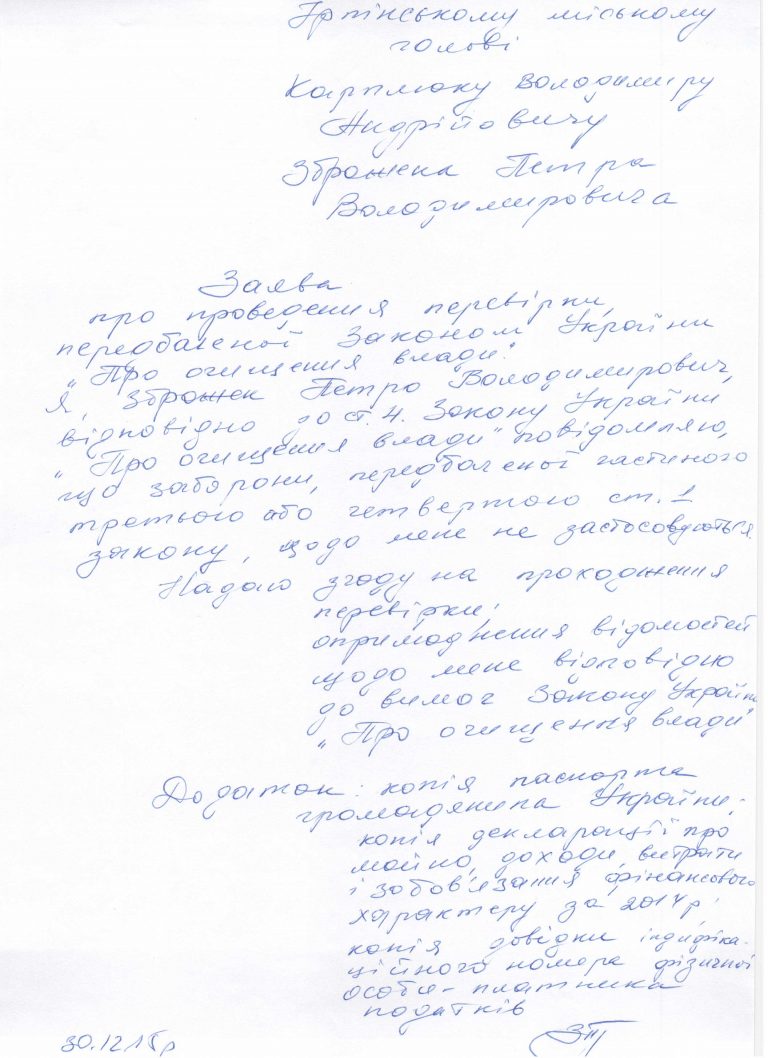 Ірпінському міському
голові
Карплюку Володимиру
Андрійовичу
Зброжека Петра
Володимировича
Заява
про проведення перевірки,
передбаченої Законом України
„Про очищення влади".
Я, Зброжек Петро Володимирович,
відповідно до ст. 4. Закону України
„Про очищення влади" повідомляю,
що заборони, передбаченої частиною
третьою або четвертою ст. 1
закону, щодо мене не застосовуються.
Надаю згоду на проходження
перевірки;
оприлюднення відомостей
щодо мене відповідно
до вимог Закону України
„Про очищення влади"
Додаток: копія паспорта
громадянина України;
копія декларації про
майно, доходи, витрати
і зобов'язання фінансового
характеру за 2014 р.
копія довідки
ційного номера фізичної
особи - платника
податків
30.12.15р